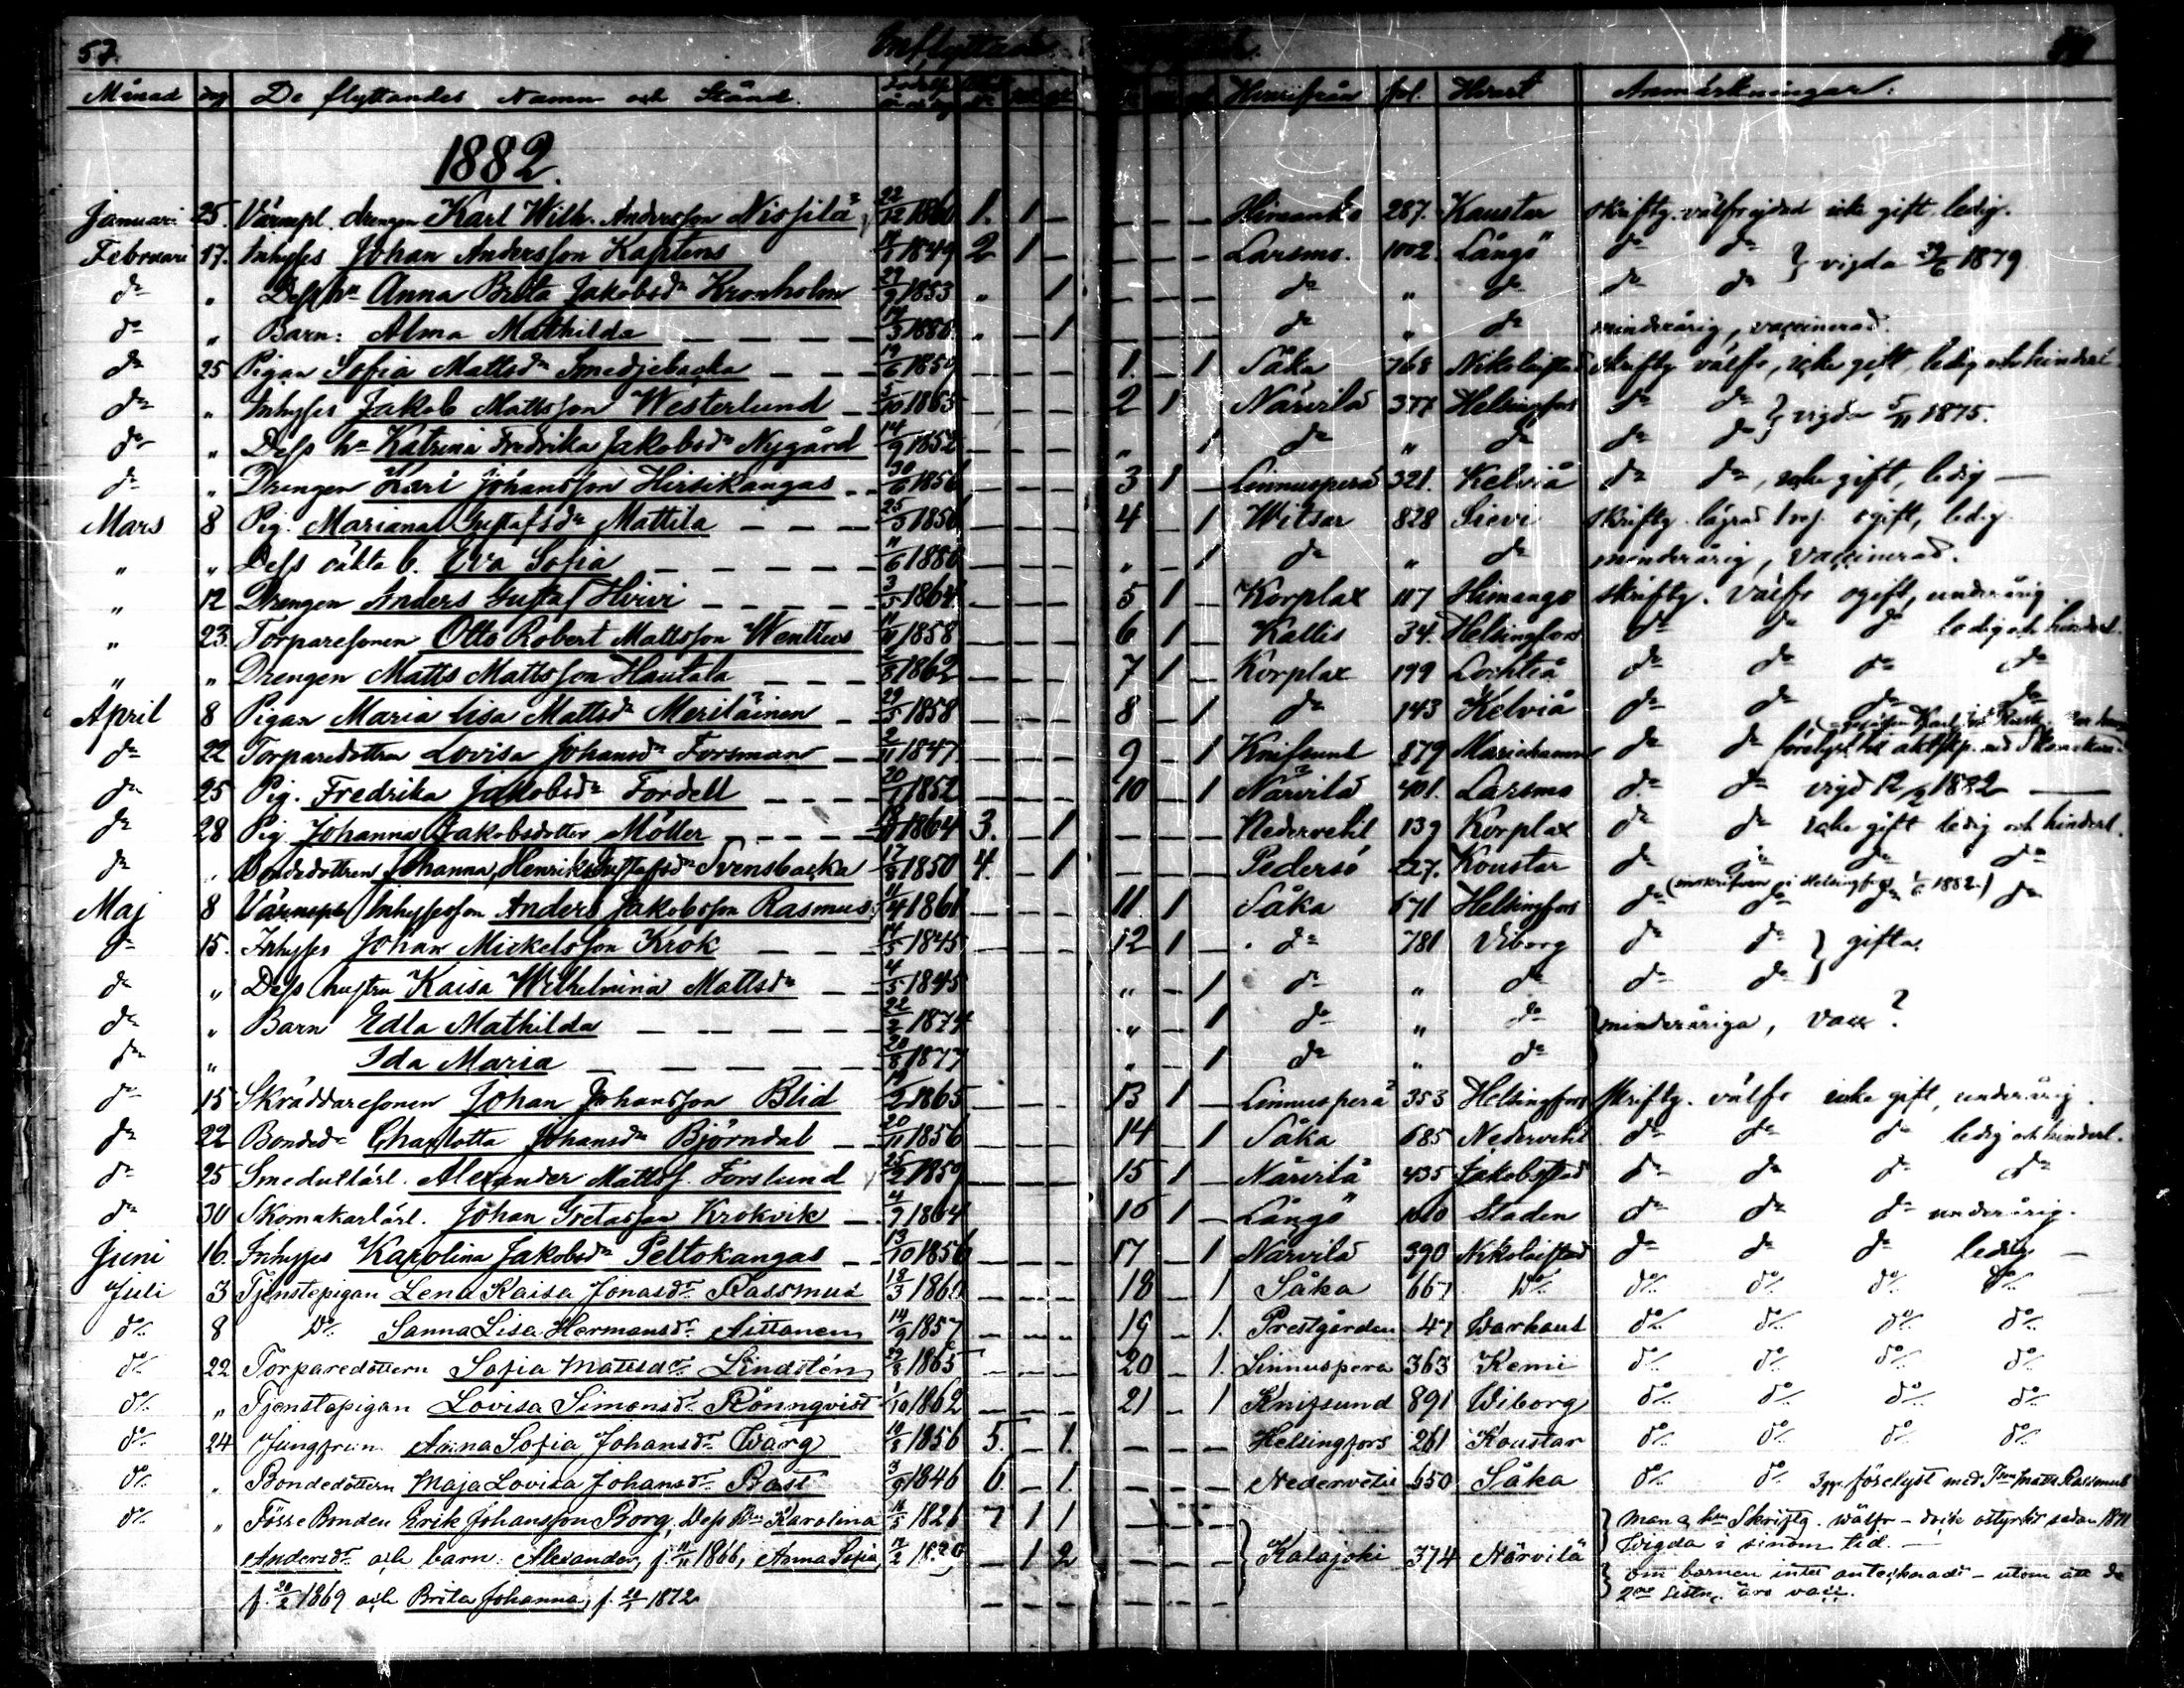 57.
Inflyttade
Månad dag De flyttandes Namn och Stånd. Hvarifrån fol. Hvart Anmärkningar.
1882.
Januari 25. Värnepl. drengen Karl Wilh. Andersson Nissilä 22/12 1860 1. 1 - - - - Himanko 287. Kaustar skriftg. välfrejdad icke gift, ledig.
Februari 17. Inhyses Johan Andersson Kaptens 1849 2 1 - - - - Larsmo. 1002. Långö do do } vigda 1879
do " Dess hu Anna Brita Jakobsdr Kronholm 29/9 1853 " 1 - - - do " do do do
do " Barn: Alma Mathilda 1880 " - 1 do " do minderårig, vaccinerad.
do 25 Pigan Sofia Mattsdr Smedjebacka 19/6 1859 - - - 1. - 1 Såka 768 Nikolaistad skriftg välfr, icke gift, ledig och hinderl.
do " Inhyses Jakob Mattsson Westerlund 5/10 1865 - - - 2 1 Närvilä 377 Helsingfors do do } vigda 5/11 1875.
do " Dess hu Katrina Fredrika Jakobsdr Nygård 14/9 1852 - - - " 1 do " do do do
do " Drengen Karl Johansson Hirsikangas 30/6 1856 - - - 3 1 - Linnusperä 321. Kelviå do do, icke gift, ledig
Mars 8 Pig. Mariana Gustafsdr Mattila 25/3 1850 - - - 4 - 1 Witsar 828 Sievi skriftg. ogift, ledig.
" " Dess oäkta b. Eva Sofia 11/6 1880 - - - " - 1 do " do minderårig, vaccinerad.
" 12 Drengen Anders Gustaf Hirvi 3/5 1864 - - - 5 1 - Korplax 117 Himango skriftg. välfr ogift, underårig
" 23. Torparesonen Otto Robert Mattsson Wentus 11/11 1858 - - - 6 1 - Kallis 34. Helsingfors do do do ledig och hinderl.
" " Drengen Matts Mattsson Hautala 1862 - - - 7 1 - Korplax 199 Lochteå do do do do
April 8 Pigan Maria Lisa Mattsdr Meriläinen 29/5 1858 - - - 8 - 1 do 143 Kelviå do do do do
do 22 Torparedottren Lovisa Johansdr Forsman 2/11 1847. - - - 9 - 1 Knifsund 879 Mariehamn do do
do 25 Pig. Fredrika Jakobsdr Fordell 1852 - - - 10 - 1 Närvilä 401. Larsmo do do vigd 1882
do 28 Pig Johanna Jakobsdotter Möller 1864 3. - 1 - - - Nedervetil 139 Korplax do do icke gift ledig och hinderl.
do " Bondedottren Johanna Henrika Gustafsdr Svensbacka 17/8 1850 4. - 1 - - - Pedersö 227. Koustar do do do do
Maj 8 Värnepl. Inhysesson Anders Jakobsson Rasmus 11/4 1861 - - - 11. 1 Såka 671 Helsingfors do do (inskrifven i Helsingfors 1882.) do
do 15. Inhyses Johan Mickelsson Krok 14/5 1845 - - - 12 1 - do 781 Viborg do do } gifta.
do " Dess hustru Kaisa Wilhelmina Mattsdr 4/5 1845 - - - " - 1 do " do do do
do " Barn Edla Mathilda 22/2 1874 " - 1 do " do } minderåriga, vacc?
do " Ida Maria 20/8 1877 " - 1 do " do
do 15 Skräddaresonen Johan Johansson Blid 1865 - - - 13 1 - Linnusperä 353 Helsingfors skriftg. välfr icke gift, underårig.
do 22 Bonded. Charlotta Johansdr Björndal 20/11 1856 - - - 14 - 1 Såka 685 Nedervetil do do do ledig och hinderl.
do 25 Smedullärl. Alexander Mattss. Forslund 25/2 1859 - - - 15 1 - Närvilä 435 Jakobstad do do do do
do 30 Skomakarlärl. Johan Gretasson Krokvik 4/9 1864 - - - 16 1 - Långö Staden do do do underårig.
Juni 16. Inhyses Karolina Jakobsdr Peltokangas 13/10 1856 - - - 17 - 1 Närvilä 390 Nikolaistad do do do ledig
Juli 3 Tjenstepigan Lena Kaisa Jonasdr Rassmus 18/3 1860 - - - 18 - 1 Såka 667 Do do do do do
do 8 Do Sanna Lisa Hermansdr Aittanen 14/9 1857 - - - 19 - 1. Prestgården 47 Warkaut do do do do
do 22 Torparedottern Sofia Mattsdr Lindstén 29/8 1865 - - - 20 - 1. Linnuspera 363 Kemi do do do do
do " Tjenstepigan Lovisa Simonsdr Rönnqvist 1/10 1862 - - - 21 - 1 Knifsund 891 Wiborg do do do do
do 24 Jungfrun Anna Sofia Johansdr Warg 10/8 1856 5. - 1. - - - Helsingfors 261 Koustar do do do do
do " Bondedottern Maja Lovisa Johansdr Bast 3/9 1846 6. - 1. - - - Nedervetil 650 Såka do do 3 gr. förelyst med Matts Rassmus
do " Förre Bonden Erik Johansson Borg, Dess hu Karolina 16/5 1826 7 1 1 - - - } man & hu Skriftg. wälfr
Andersdr och barn: Alexander, f. 11/11 1866, Anna Sofia, 12/2 - 1 2 Kalajoki 374 Närvilä Wigda i sinom tid. -
f. 20/2 1869 och Brita Johanna, f. 20/1 1872 - - - } om barnen intet antecknadt - utom att de
2ne sistn. äro vacc.